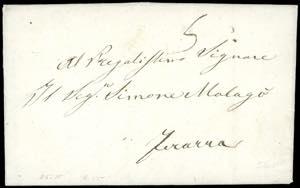 5
Al Pregiatissimo Signore
Il Sigr. Simone Malagò
Ferrara